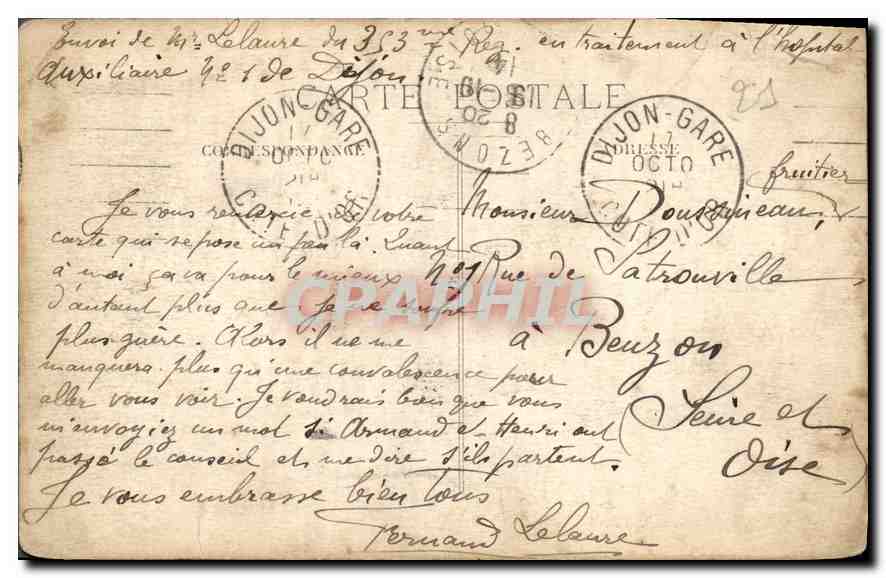 Envoi de Mr Lelaure du 353me Reg. en traitement à l'hopital
Auxiliaire No 1 de Dijon.
CARTE POSTALE
CORRESPONDANCE
ADRESSE
DIJON-GARE
17
OCTO
CÔTE D'OR
BEZONS
20
8
19
DIJON-GARE
17
OCTO
CÔTE D'OR
Je vous remercie de votre
carte qui se pose un peu là. Quant
à moi ça va pour le mieux
d'autant plus que je ne souffre
plus guère. Alors il ne me
manquera plus qu'une convalescence pour
aller vous voir. Je voudrais bien que vous
m'envoyiez un mot si Armand et Henri ont
passé le conseil et me dire s'ils partent.
Je vous embrasse bien tous
Fernand Lelaure.
Monsieur
fruitier
No 1 Rue de Satrouville
à Beuzon
(Seine et
Oise)
CPAPHIL